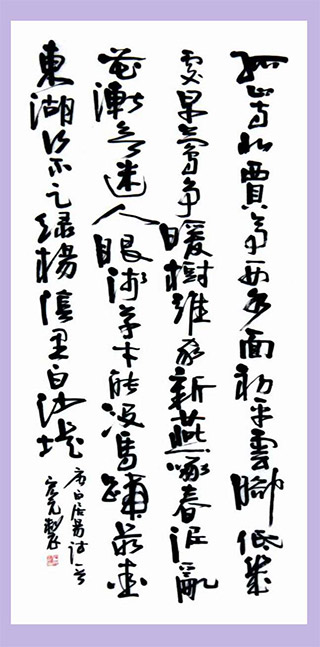 孤山寺北賈亭西水面初平雲腳低幾
處早鶯爭暖樹誰家新燕啄春泥亂
花漸欲迷人眼淺草才能没馬蹄最愛
東湖行不足綠楊陰里白沙堤
白居易詩一首